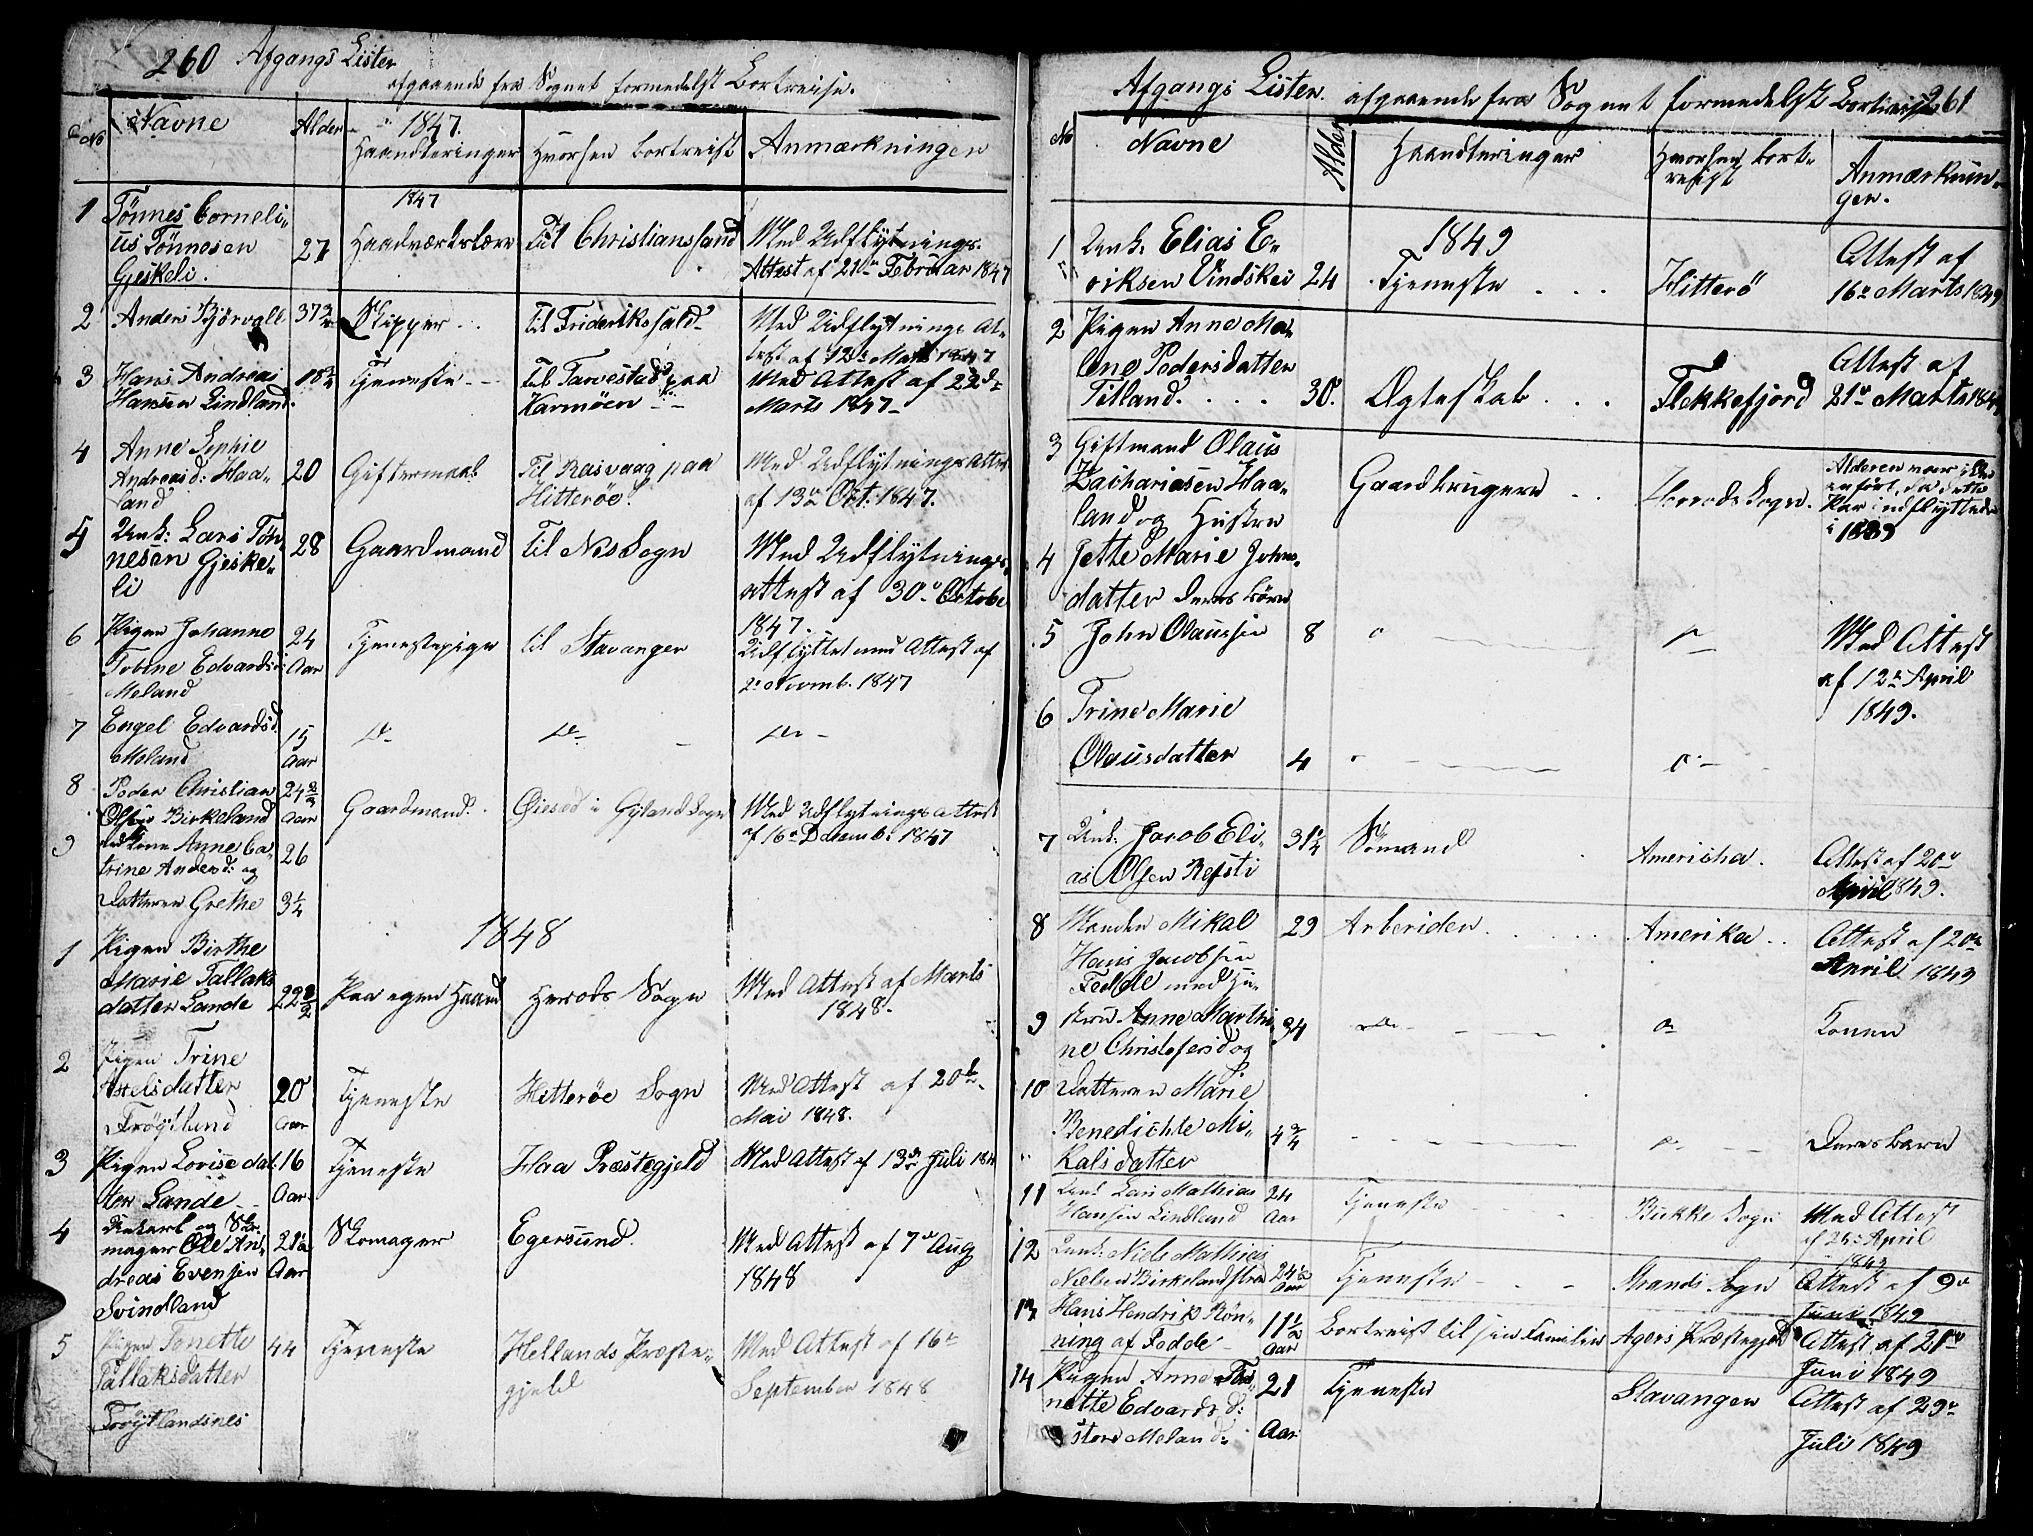 260 Afgangs Lister
afgaaende fra Sognet formedelst Bortreise.
No Navne Alder 1847. Haandteringer Hvorhen bortreist Anmærkningen
1847
1 Tønnes Corneli-
us Tønnesen
Gjeskeli. 27 Haadværkslære til Christianssand Med Udflytnings-
Attest af 21de Februar 1847
2 Anders Bjørvall 37 Skipper til Friderikshald Med Udflytnings At-
test af 12te Marts 1847
3 Hans Andreas
Hansen Lindland. 18 Tjeneste til Tarvestad paa
Karmøen Med Attest af 22de
Marts 1847
4 Anne Sophie
Andreasd: Haa-
land 20 Giftermaal Til Rasvaag paa
Hitterøe. Med Udflytnings Attest
af 13de Oct: 1847.
5 Unk: Lars Tøn-
nesen Gjeske-
li 28 Gaardmand til Nes Sogn Med Udflytnings-
attest af 30te Octobe
1847.
6 Pigen Johanne
Tobine Edvardsd:
Meland 24
Aar Tjenestepige til Stavanger Udflyttet med Attest af
2de Novemb. 1847
7 Engel Edvardsd.
Meland 15
Aar do do do
8 Peder Christian
Olsen Birkeland 24 2/3
Aar Gaardmand. Øiesed i Gyland Sogn Med Udflytnings attest
af 16de Decemb: 1847
9 Anne Ca-
trine Andersd: og 26
Datteren Grethe 3 1/4
1848
1 Pigen Birthe
Marie Tallaks
datter Sande 22 Paa egen Haand Herads Sogn Med Attest af Marts
1848.
2 Pigen Trine
Axelsdatter
Frøytlund 20
Aar Tjeneste Hitterøe Sogn Med Attest af 20de
Mai 1848.
3 Pigen Lovise dat-
ter Sande 16
Aar Tjeneste Haa Præstegjeld Med Attest af 13de Juli 184
4 Unkarl og Sko-
mager Ole An-
dreas Evensen
Svindland 21 1/2
Aar Skomager Egersund. Med Attest af 7de Aug
1848
5 Pigen Tonette
Tallaksdatter
Frøytlandsnes 44 Tjeneste Hellands Præste-
gjeld Med Attest af 16de
September 1848
Afgangs Lister. afgaaende fra Sognet formedelst Bortreise 261
No Navne Alder Haandteringer Hvorhen bort-
reist Anmærknin-
gen.
1849
1 Unk: Elias E-
riksen Vindskei 24 Tjeneste Hitterø Attest af
16de Marts 1849
2 Pigen Anne Ma-
lene Pedersdatter
Titland. 30. Ægteskab Flekkefjord Attest af
21de Marts 1849
3 Giftmand Olaus
Zachariasen Haa-
land og Hustru Gaardbrugere Herreds Sogn. Alderen var
anført, da dette
Par indflyttede
i 1839
4 Jette Marie Johns-
datter deres børn
5 John Olaussen 8 Med Attest
af 12te April
1849.
6 Trine Marie
Olausdatter 4
7 Unk: Jacob Eli-
as Olsen Refsti 31 1/4 Sømand Americha. Attest af 20de
April 1849.
8 Manden Mikal
Hans Jacobsen
Fedde med Hu- 29 Arbeiden Amerika Attest af 20de
April 1849
9 stru Anne Marthi
ne Christofersd og 34 do Konen
10 Datteren Marie
Benedichte Mi-
kalsdatter 4 3/4 Deres barn
11 Unk Lars Mathias
Hansen Lindland 24
Aar Tjeneste Bukke Sogn Med Attest
af 26de April
1849
12 Unk: Niels Mathias
Nielsen Birkelandstrøe 24 1/2
Aar Tjeneste Strands Sogn Attest af 9de
Juni 1849
13 Hans Hendrik Røn-
ning af Fedde 11 1/2
Aar Bortreist til sin Familien Agers Præstegjeld Attest af 21de
Juni 1849
14 Pigen Anne
nette Edvards d:
store Meland 21
Aar Tjeneste Stavanger Attest af 29de
Juli 1849